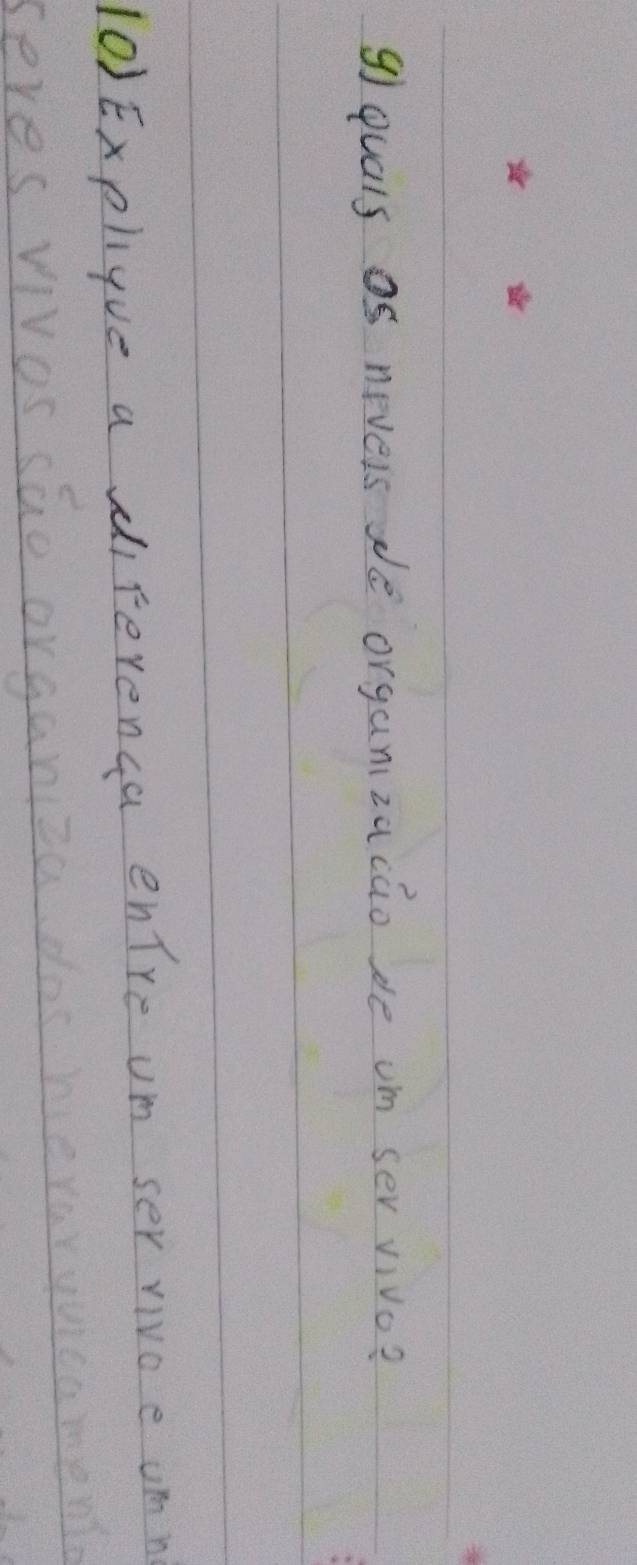 9) Quais os níveis de organizacão de um ser vivo?
10) Explique a diferença entre um ser vivo e um n
seres vivos são organizados hierarquicamente